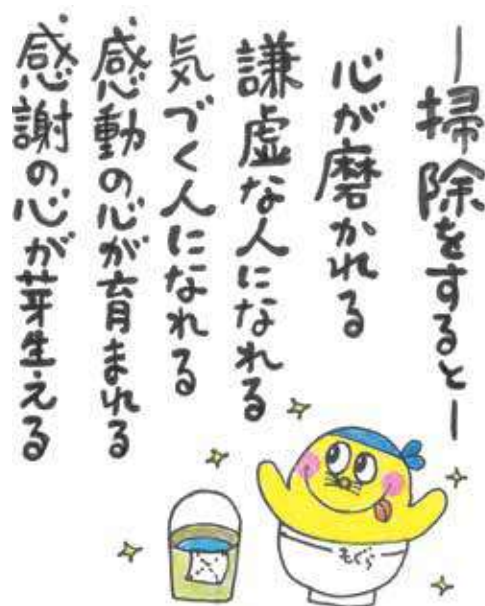 ―掃除をすると―
心が磨かれる
謙虚な人になれる
気づく人になれる
感動の心が育まれる
感謝の心が芽生える
もぐら